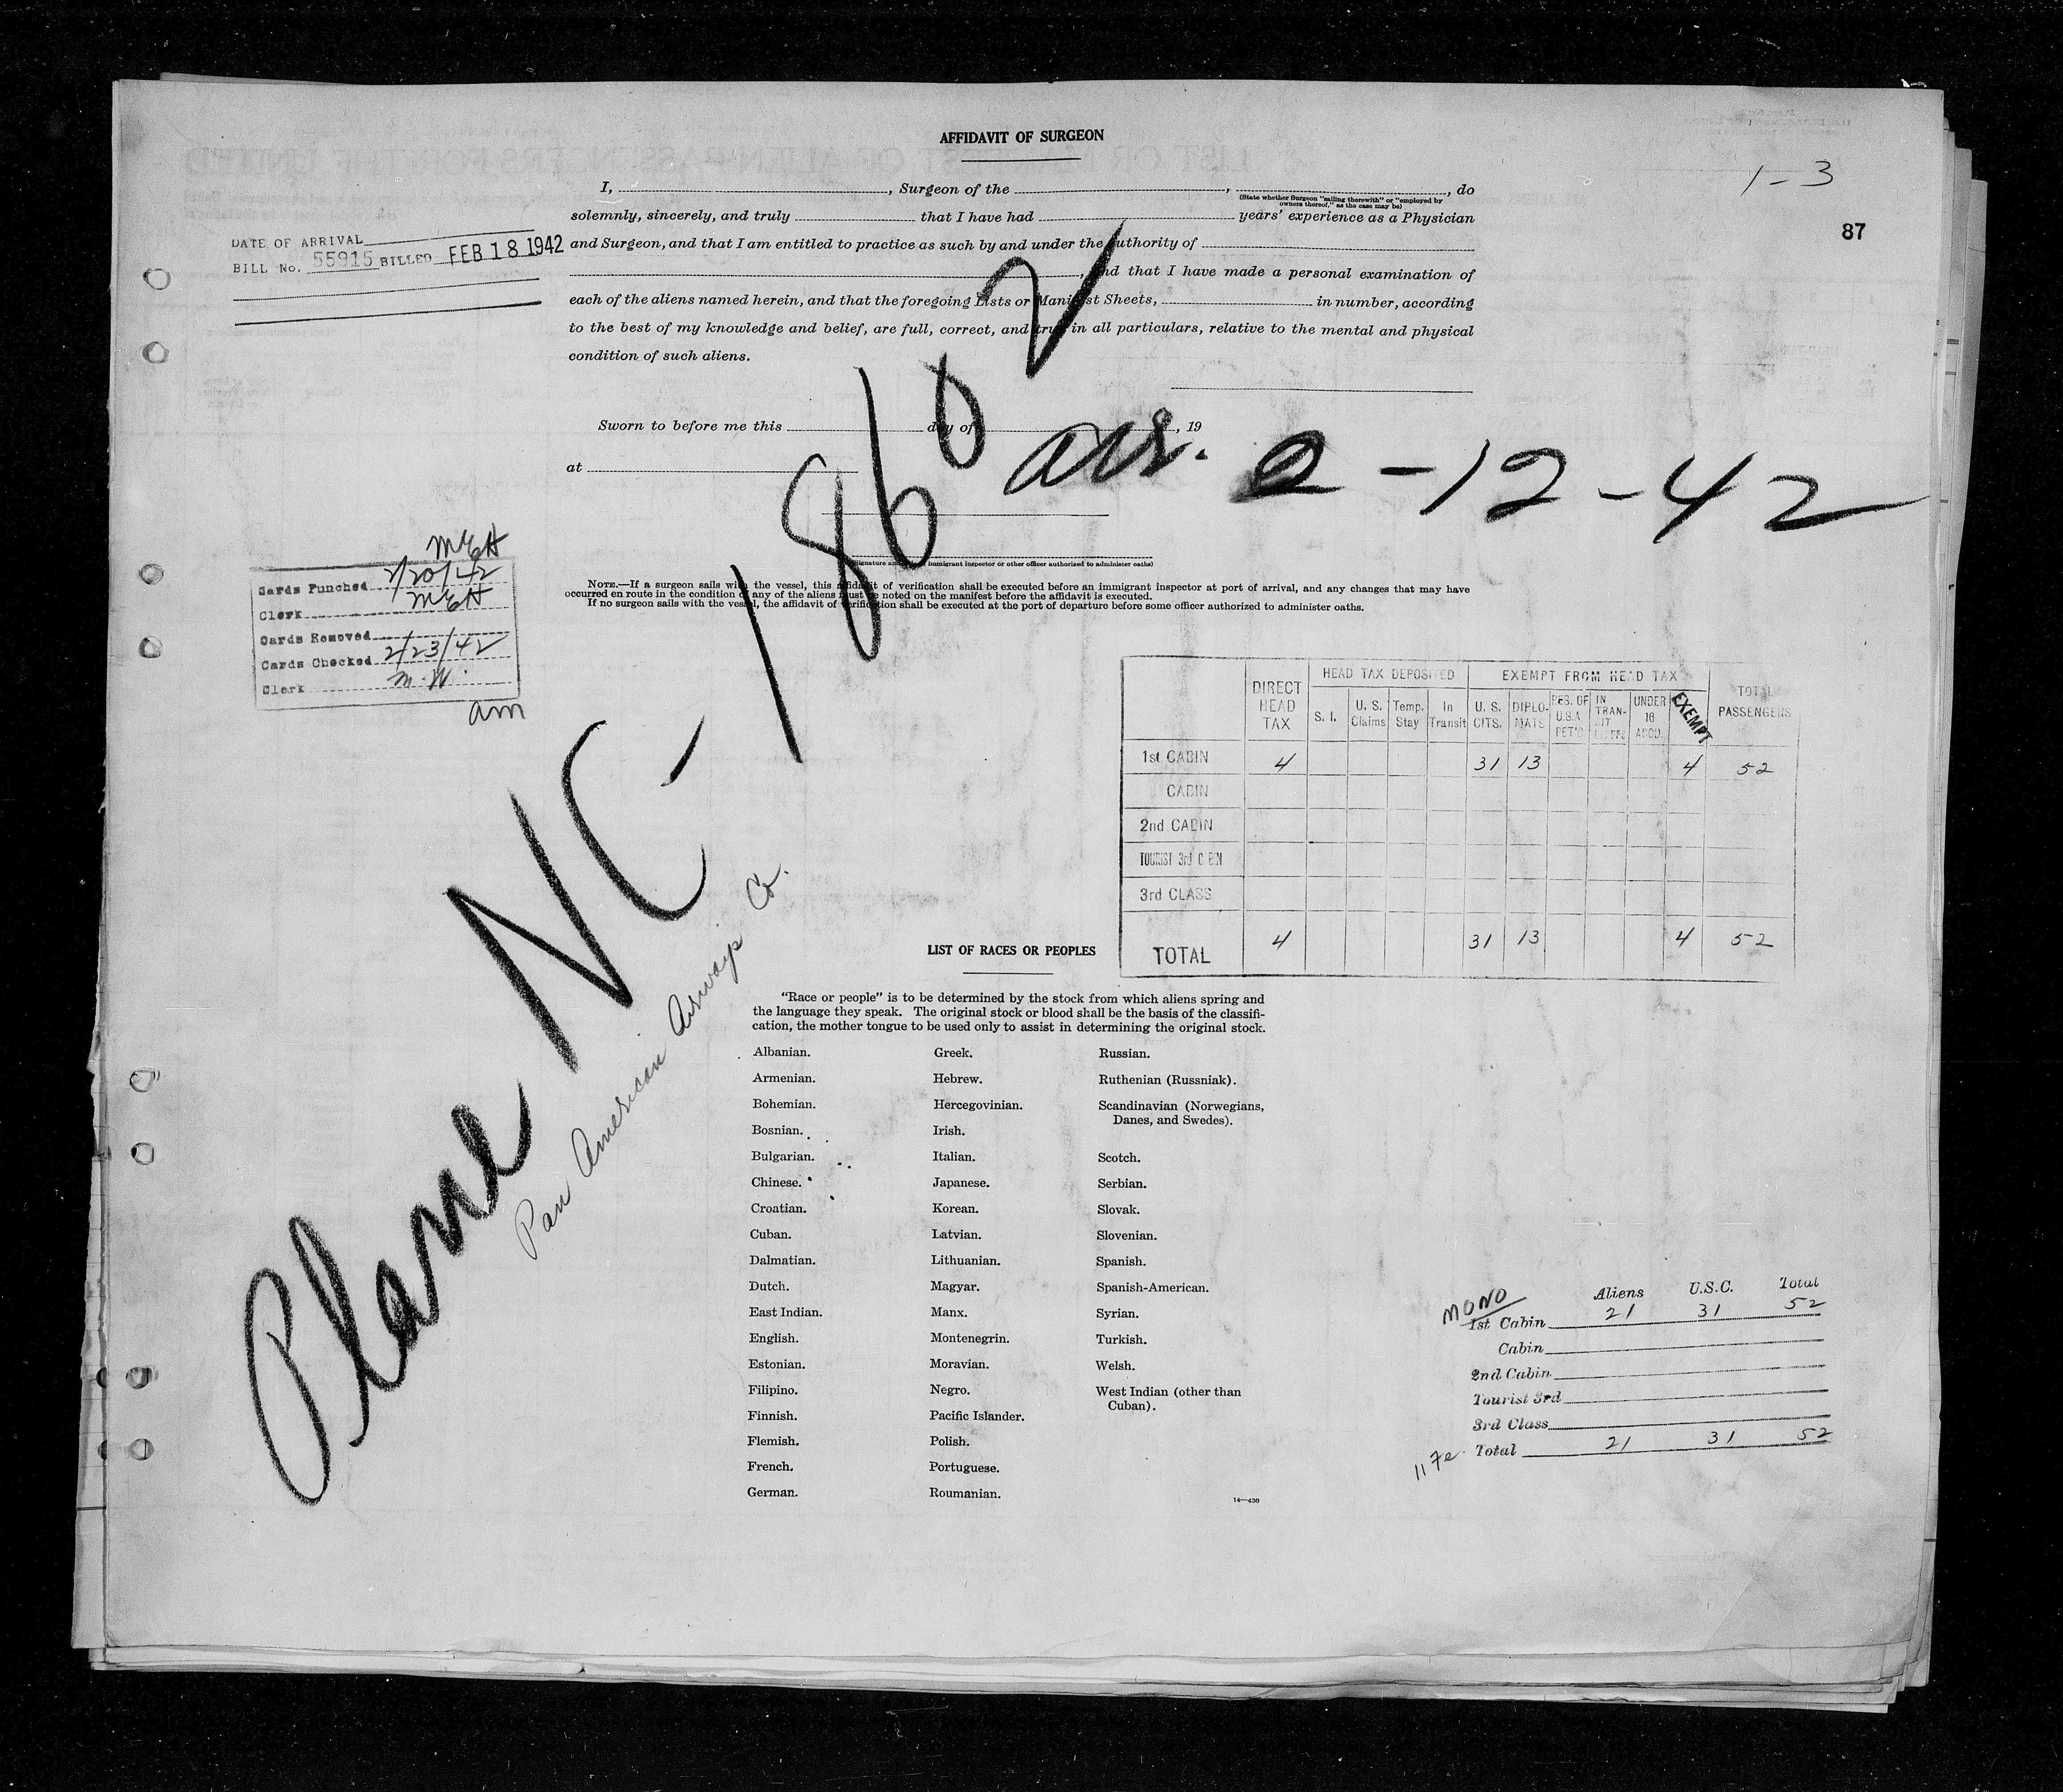 AFFIDAVIT OF SURGEON
1-3
87
I, , Surgeon of the , , do
(State whether Surgeon "sailing therewith" or "employed by
owners thereof," as the case may be)
solemnly, sincerely, and truly that I have had years' experience as a Physician
and Surgeon, and that I am entitled to practice as such by and under the authority of
, and that I have made a personal examination of
each of the aliens named herein, and that the foregoing Lists or Manifest Sheets, in number, according
to the best of my knowledge and belief, are full, correct, and true in all particulars, relative to the mental and physical
condition of such aliens.
DATE OF ARRIVAL
BILL No. 55915 BILLED FEB 18 1942
Sworn to before me this day of , 19
at
arr. 2-12-42
(Signature and immigrant inspector or other officer authorized to administer oaths)
NOTE.—If a surgeon sails with the vessel, this affidavit of verification shall be executed before an immigrant inspector at port of arrival, and any changes that may have
occurred en route in the condition of any of the aliens must be noted on the manifest before the affidavit is executed.
If no surgeon sails with the vessel, the affidavit of verification shall be executed at the port of departure before some officer authorized to administer oaths.
MEH
Cards Punched 2/20/42
Clerk MEH
Cards Removed
Cards Checked 2/23/42
Clerk M.W.
am
Plane NC-18602
Pan American Airways Co.
DIRECT HEAD TAX
HEAD TAX DEPOSITED
EXEMPT FROM HEAD TAX
TOTAL PASSENGERS
S. I. U. S. Claims Temp. Stay In Transit U. S. CITS. DIPLO-MATS RES. OF U.S.A. RET'G IN TRAN-SIT UNDER 16 ACCD. EXEMPT
1st CABIN 4 31 13 4 52
CABIN
2nd CABIN
TOURIST 3rd CABIN
3rd CLASS
TOTAL 4 31 13 4 52
LIST OF RACES OR PEOPLES
"Race or people" is to be determined by the stock from which aliens spring and
the language they speak. The original stock or blood shall be the basis of the classifi-
cation, the mother tongue to be used only to assist in determining the original stock.
Albanian.
Armenian.
Bohemian.
Bosnian.
Bulgarian.
Chinese.
Croatian.
Cuban.
Dalmatian.
Dutch.
East Indian.
English.
Estonian.
Filipino.
Finnish.
Flemish.
French.
German.
Greek.
Hebrew.
Hercegovinian.
Irish.
Italian.
Japanese.
Korean.
Latvian.
Lithuanian.
Magyar.
Manx.
Montenegrin.
Moravian.
Negro.
Pacific Islander.
Polish.
Portuguese.
Roumanian.
Russian.
Ruthenian (Russniak).
Scandinavian (Norwegians,
Danes, and Swedes).
Scotch.
Serbian.
Slovak.
Slovenian.
Spanish.
Spanish-American.
Syrian.
Turkish.
Welsh.
West Indian (other than
Cuban).
14—430
MONO
Aliens U.S.C. Total
1st Cabin 21 31 52
Cabin
2nd Cabin
Tourist 3rd
3rd Class
Total 21 31 52